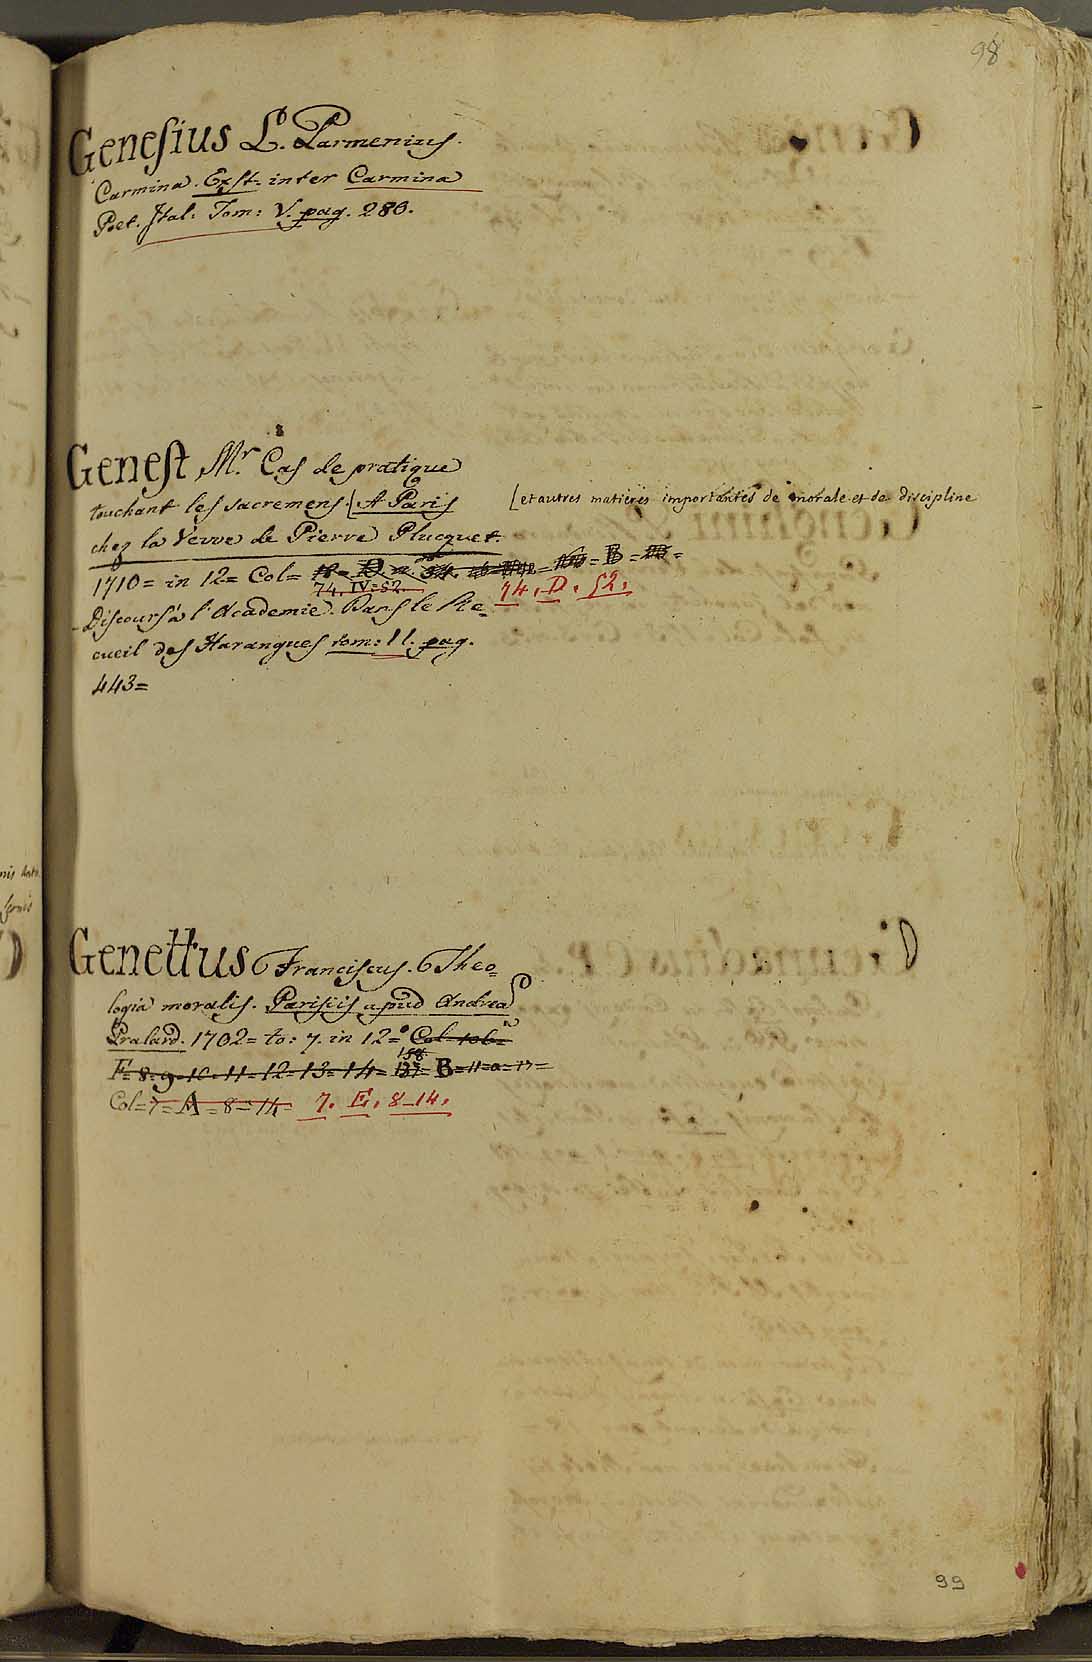 98
Genesius L. Parmenius.
Carmina. Exst: inter Carmina
Poet. Ital: Tom: V. pag. 286.
Genest Mr. Cas de pratique
touchant les sacremens. [A Paris [et autres matieres importantes de morale et de discipline
chez la Veuve de Pierre Plucquet.
1710= in 12= Col= = B =
74. IV=52. 74. D. 52.
- Discours à l'Academie. Dans le Re=
cueil des Harangues tom: II. pag.
443=
Genettus Franciscus. Theo=
logia moralis. Parisiis apud Andrea
Pralard. 1702= to: 7. in 12=° Col=
158
F= 8=9=10=11=12=13=14= 137= B=11=a=17=
Col=7= A =8=14= 7. E. 8_14.
99